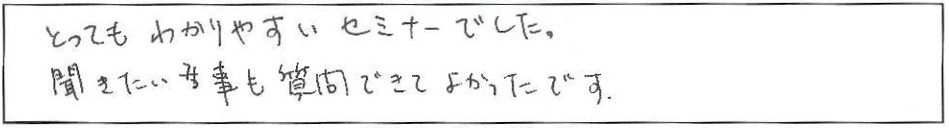 とってもわかりやすいセミナーでした。
聞きたい事も質問できてよかったです.